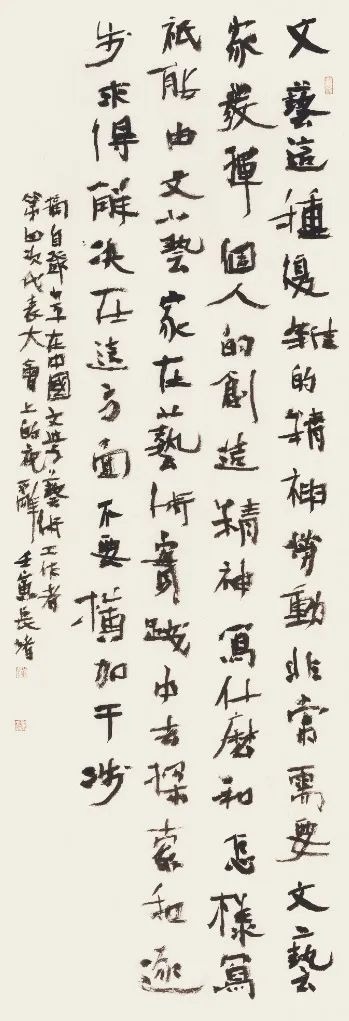 文藝這種復雜的精神勞動非常需要文藝
家發揮個人的創造精神寫什麼和怎樣寫
祇能由文藝家在藝術實踐中去探索和逐
步求得解決在這方面不要橫加干涉
摘自鄧在中國文學藝術工作者
第四次代表大會上的祝辭壬寅長